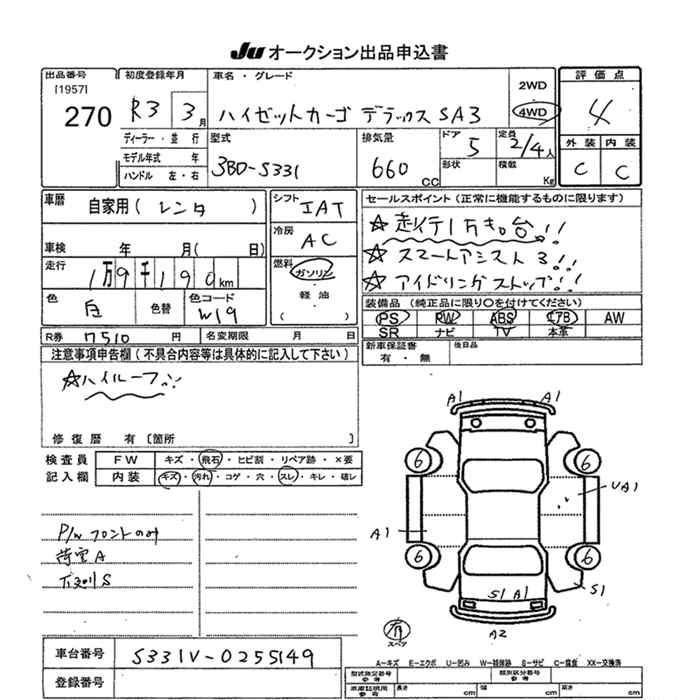 JU オークション出品申込書
出品番号
[1957]
270
初度登録年月
R3 3月
ディーラー・並行
モデル年式 年
ハンドル 左・右
車名・グレード
ハイゼットカーゴ デラックス SA3
2WD
4WD
型式
3BD-S331
排気量
660 CC
ドア
5
形状
定員
2/4人
積載
Kg
評価点
4
外装 内装
C C
車歴
自家用 ( レンタ )
車検 年 月( 日)
走行
1万9千190km
色
白
色替
色コード
W19
シフト
IAT
冷房
AC
燃料
ガソリン
・
軽油
( )
セールスポイント (正常に機能するものに限ります)
☆走行1万キロ台!!
☆スマートアシスト3!!
☆アイドリングストップ!!
装備品 (純正品に限り○を付けてください)
PS PW ABS エアB AW
SR ナビ TV 本革
R券 7510 円 名変期限 月 日
新車保証書
有・無
後日品
注意事項申告欄 (不具合内容等は具体的に記入して下さい)
☆ハイルーフ!!
修復歴 有 〔箇所 〕
検査員
記入欄
FW キズ・飛石・ヒビ割・リペア跡・×要
内装 キズ・汚れ・コゲ・穴・スレ・キレ・破レ
P/W フロントのみ
荷室A
下廻りS
A1 A1
6 6
A1
UA1
6 6
S1 A1
S1
A2
有
スペア
車台番号 S331V-0255149
登録番号
A=キズ E=エクボ U=凹み W=補修跡 S=サビ C=腐食 XX=交換済
型式指定番号
参考
類別区分番号
参考
車庫証明用
参考
長さ cm 幅 cm 高さ cm